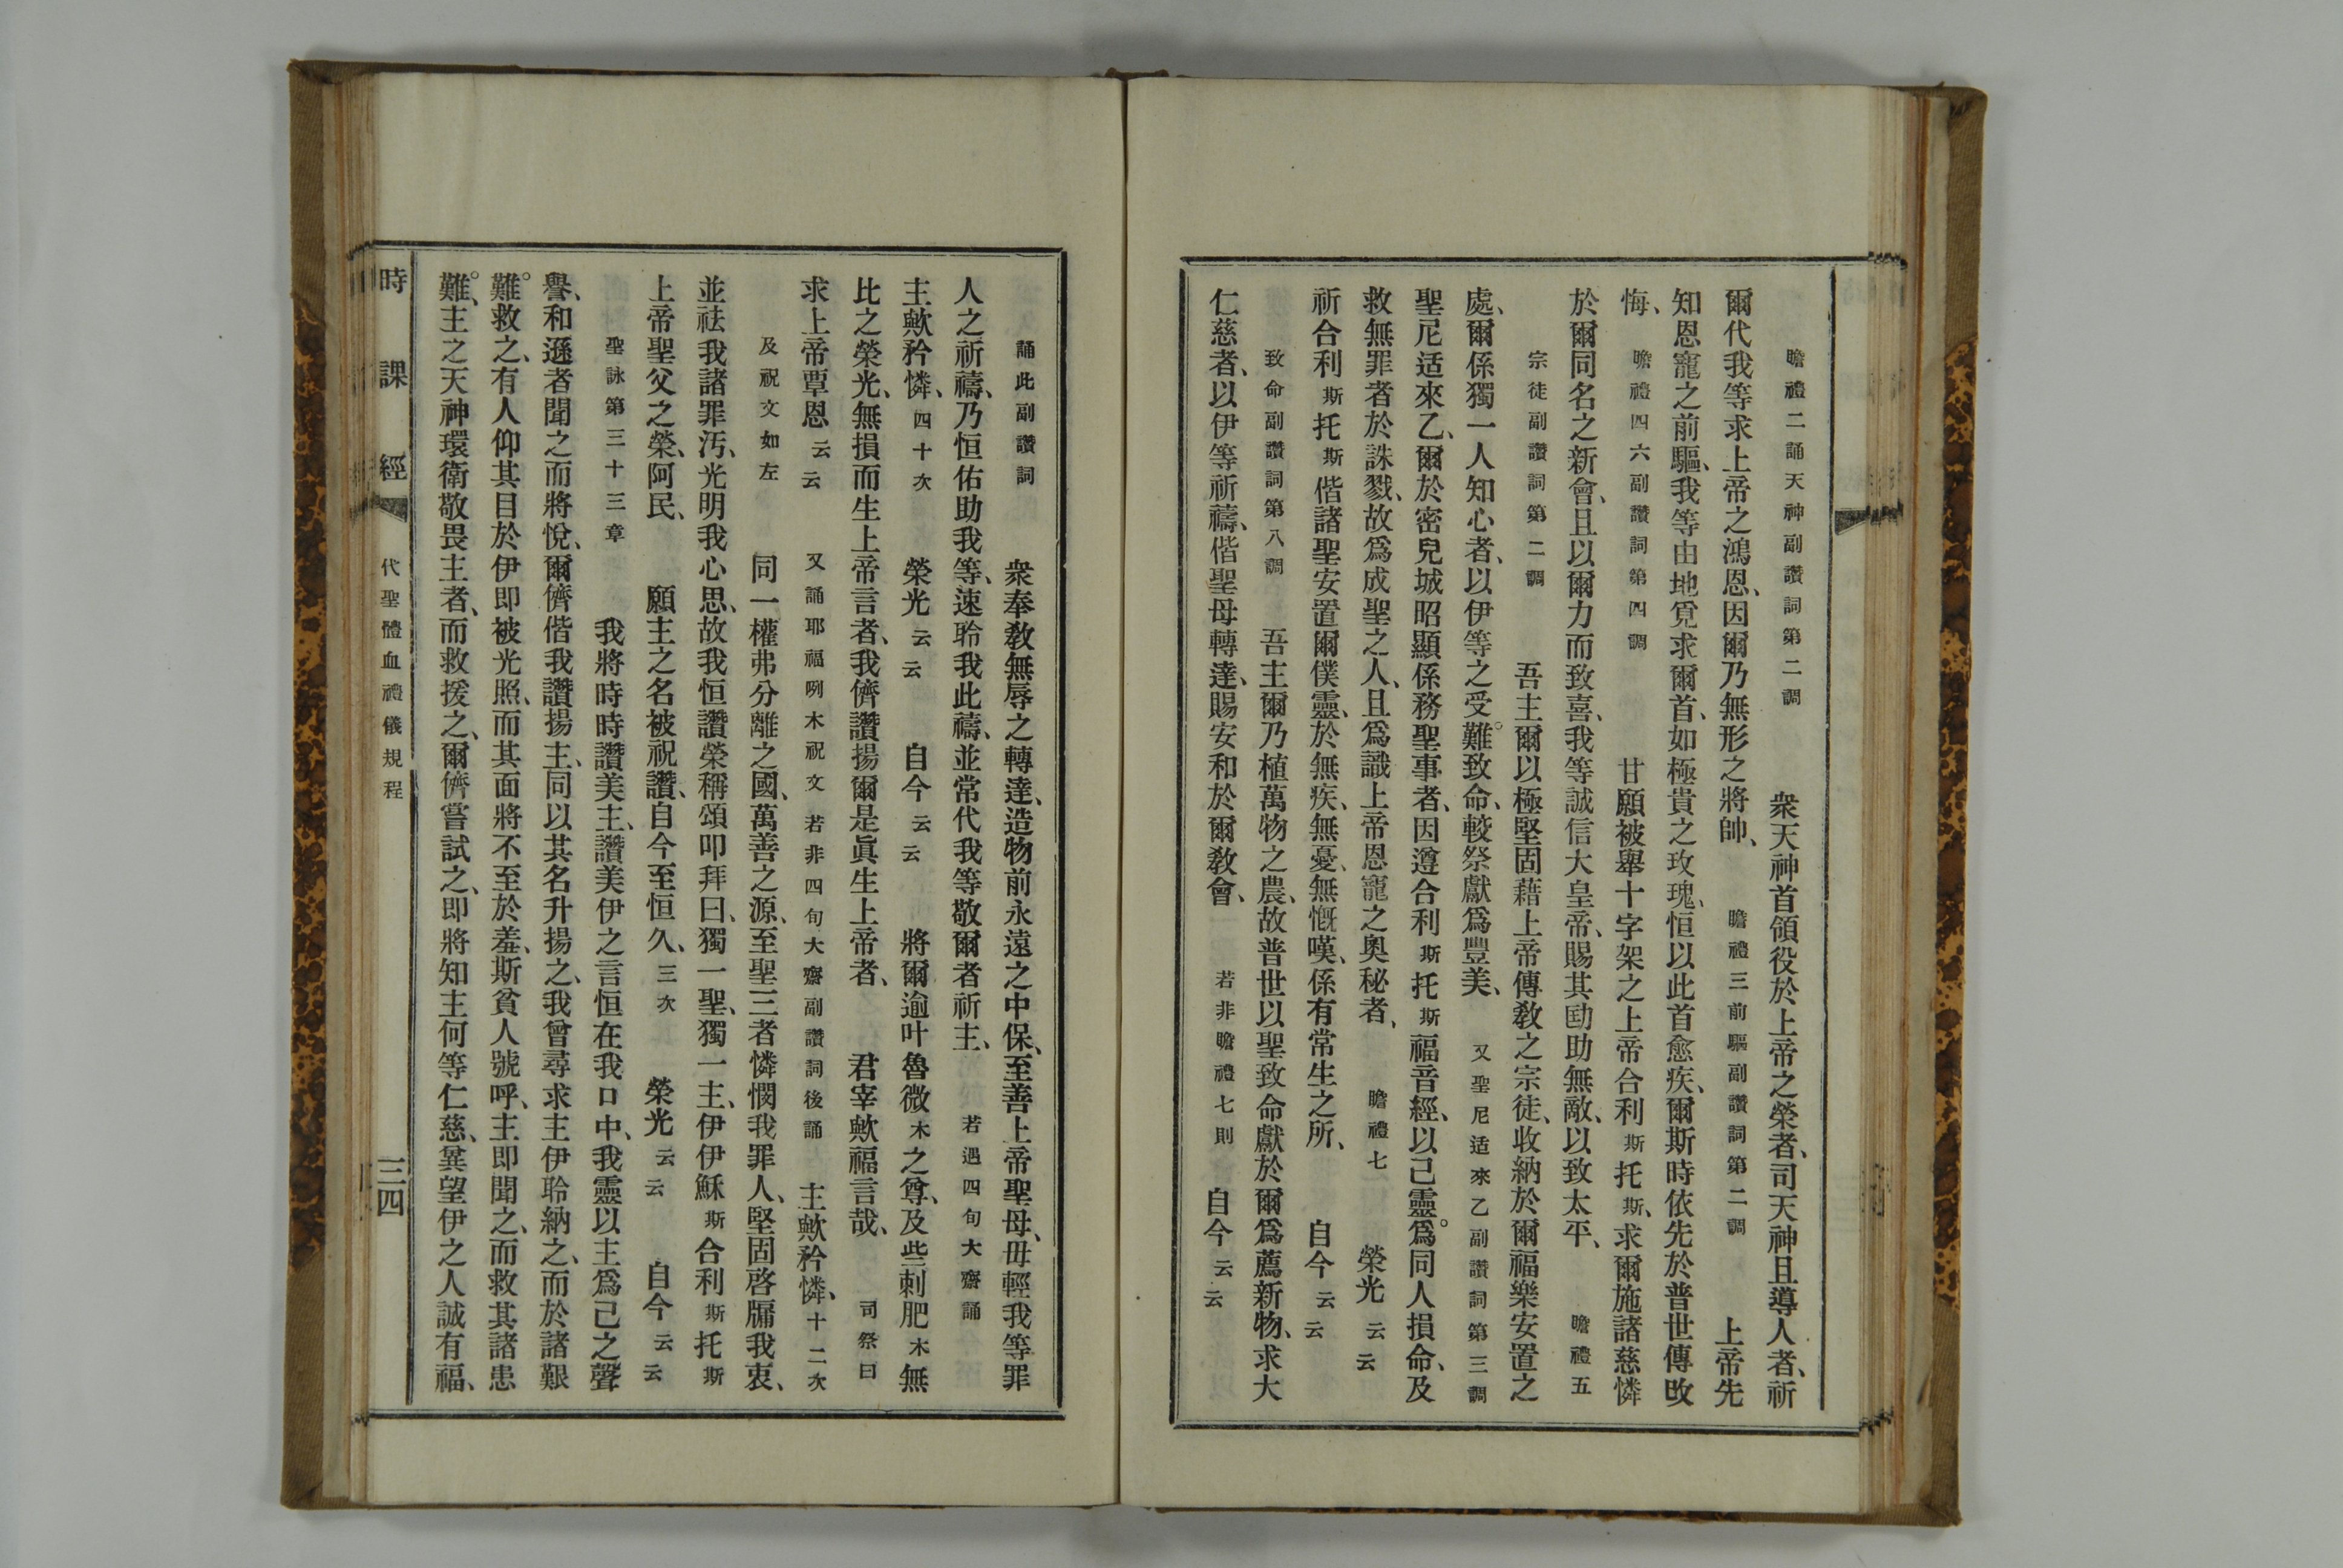 瞻禮二誦天神副讚詞第二調　衆天神首領役於上帝之榮者、司天神且導人者、祈
爾代我等求上帝之鴻恩、因爾乃無形之將帥、　瞻禮三前驅副讚詞第二調　上帝先
知恩寵之前驅、我等由地覓求爾首、如極貴之玫瑰、恒以此首愈疾、爾斯時依先於普世傳敀
悔、　瞻禮四六副讚詞第四調　甘願被舉十字架之上帝合利斯托斯、求爾施諸慈憐
於爾同名之新會、且以爾力而致喜、我等誠信大皇帝、賜其勖助無敵、以致太平、　瞻禮五
宗徒副讚詞第二調　吾主爾以極堅固藉上帝傳敎之宗徒、收納於爾福樂安置之
處、爾係獨一人知心者、以伊等之受難。致命、較祭獻爲豐美、　又聖尼适來乙副讚詞第三調
聖尼适來乙、爾於密兒城昭顯係務聖事者、因遵合利斯托斯福音經、以己靈爲。同人損命、及
救無罪者於誅戮、故爲成聖之人、且爲識上帝恩寵之奧秘者、　瞻禮七　榮光云云
祈合利斯托斯偕諸聖安置爾僕靈、於無疾、無憂、無慨嘆、係有常生之所、　自今云云
致命副讚詞第八調　吾主爾乃植萬物之農、故普世以聖致命獻於爾爲薦新物、求大
仁慈者、以伊等祈禱、偕聖母轉達、賜安和於爾敎會、　若非瞻禮七則　自今云云
誦此副讚詞　衆奉敎無辱之轉達、造物前永遠之中保、至善上帝聖母、毋輕我等罪
人之祈禱、乃恒佑助我等、速聆我此禱、並常代我等敬爾者祈主、　若遇四旬大齋誦
主歟矜憐、四十次　榮光云云　自今云云　將爾逾叶魯微木之尊、及些刺肥木無
比之榮光、無損而生上帝言者、我儕讚揚爾是眞生上帝者、　君宰歟福言哉、　司祭曰
求上帝覃恩云云　又誦耶福咧木祝文若非四旬大齋副讚詞後誦　主歟矜憐、十二次
及祝文如左　同一權弗分離之國、萬善之源、至聖三者憐憫我罪人、堅固啓牖我衷、
並祛我諸罪汚、光明我心思、故我恒讚榮稱頌叩拜曰、獨一聖、獨一主、伊伊穌斯合利斯托斯
上帝聖父之榮、阿民、　願主之名被祝讚、自今至恒久、三次　榮光云云　自今云云
聖詠第三十三章　我將時時讚美主、讚美伊之言恒在我口中、我靈以主爲己之聲
譽、和遜者聞之而將悅、爾儕偕我讚揚主、同以其名升揚之、我曾尋求主伊聆納之、而於諸艱
難。救之、有人仰其目於伊即被光照、而其面將不至於羞、斯貧人號呼、主即聞之、而救其諸患
難。、主之天神環衛敬畏主者、而救援之、爾儕嘗試之、即將知主何等仁慈、冀望伊之人誠有福、
時課經　代聖體血禮儀規程　三四